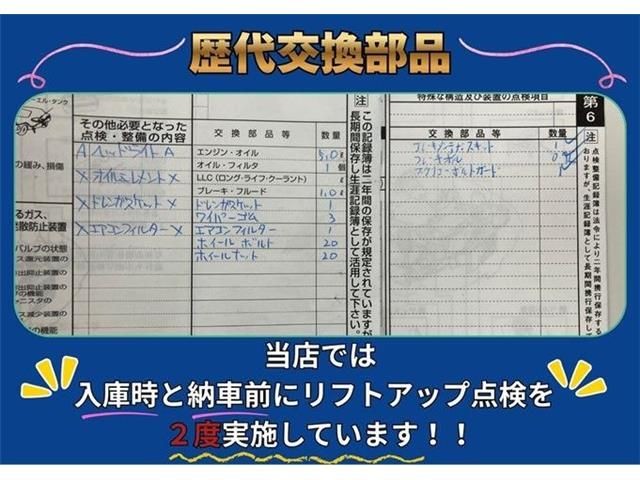 歴代交換部品
ーエル・タンク
の緩み、損傷
るガス、
発散防止装置
バルブの状態
ス還元装置の
出抑止装置の
の機能
ャニスタの
ス減少装置の
の機能
その他必要となった
点検・整備の内容
A ヘッドライト A
X オイルエレメント X
X ドレンガスケット X
X エアコンフィルター X
交換部品等 数量
エンジン・オイル 5.0 ℓ
オイル・フィルタ 1 個
LLC(ロング・ライフ・クーラント) ℓ
ブレーキ・フルード 1.0 ℓ
ドレンガスケット 1
ワイパーゴム 3
エアコンフィルター 1
ホイールボルト 20
ホイールナット 20
注 この記録簿は二年間の保存が規定されていますが
長期間保存し生涯記録簿として活用して下さい。
特殊な構造及び装置の点検項目
交換部品等 数量
第6
注 点検整備記録簿は法令により二年間携行保存する
おりますが、生涯記録簿として長期間携行保存して
当店では
入庫時と納車前にリフトアップ点検を
2度実施しています!!